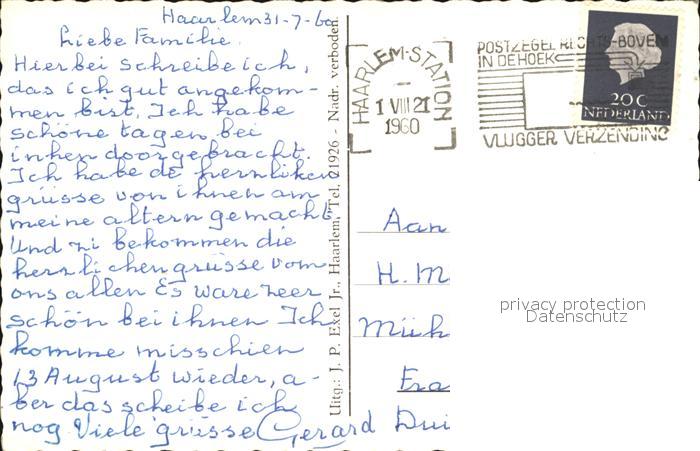 Haarlem 31-7-60
Liebe Familie.
Hierbei schreibe ich,
das ich gut angekom-
men bist. Ich habe
schöne tagen bei
inhen doorgebracht.
Ich habe de hernliken
grüsse von ihnen am
meine altern gemacht
Und zi bekommen die
herrlichen grüsse vom
ons allen Es ware zeer
schön bei ihnen Ich
komme misschien
13 August wieder, a-
ber das scheibe ich
nog Viele grüsse Gerard
Uitg.: J. P. Exel Jr., Haarlem, Tel. 21926 - Nadr. verboden
HAARLEM-STATION
1 VIII 21
1960
POSTZEGEL RECHTS-BOVEN
IN DE HOEK
VLUGGER VERZENDING
20 C
NEDERLAND
Aan
H. M
Müh
Fra
Dui
privacy protection
Datenschutz